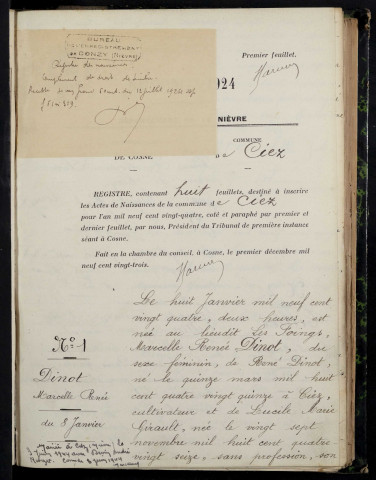 BUREAU
D'ENREGISTREMENT
DE DONZY (NIÈVRE)
Registre des naissances
Recette
f 5
Premier feuillet.
924
NIÈVRE
COMMUNE
DE COSNE
de Ciez
REGISTRE, contenant huit feuillets, destiné à inscrire
les Actes de Naissances de la commune de Ciez
pour l'an mil neuf cent vingt-quatre, coté et paraphé par premier et
dernier feuillet, par nous, Président du Tribunal de première instance
séant à Cosne.
Fait en la chambre du conseil, à Cosne, le premier décembre mil
neuf cent vingt-trois.
No 1
Dinot
Marcelle Renée
du 8 Janvier
Le huit Janvier mil neuf cent
vingt quatre, deux heures, est
née au lieudit Les Poings,
Marcelle Renée Dinot, du
sexe féminin, de René Dinot,
né le quinze mars mil huit
cent quatre vingt quinze à Ciez,
cultivateur et de Lucile Marie
Girault, née le vingt sept
novembre mil huit cent quatre
vingt seize, sans profession, son